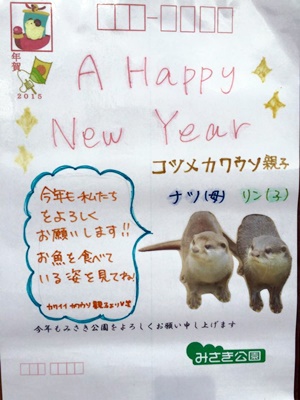 年賀
2015
A Happy
New Year
コツメカワウソ親子
ナツ(母) リン(子)
今年も私たち
をよろしく
お願いします!!
お魚を食べて
いる姿を見てね!
カワイイ カワウソ 親子より
今年もみさき公園をよろしくお願い申し上げます
みさき公園